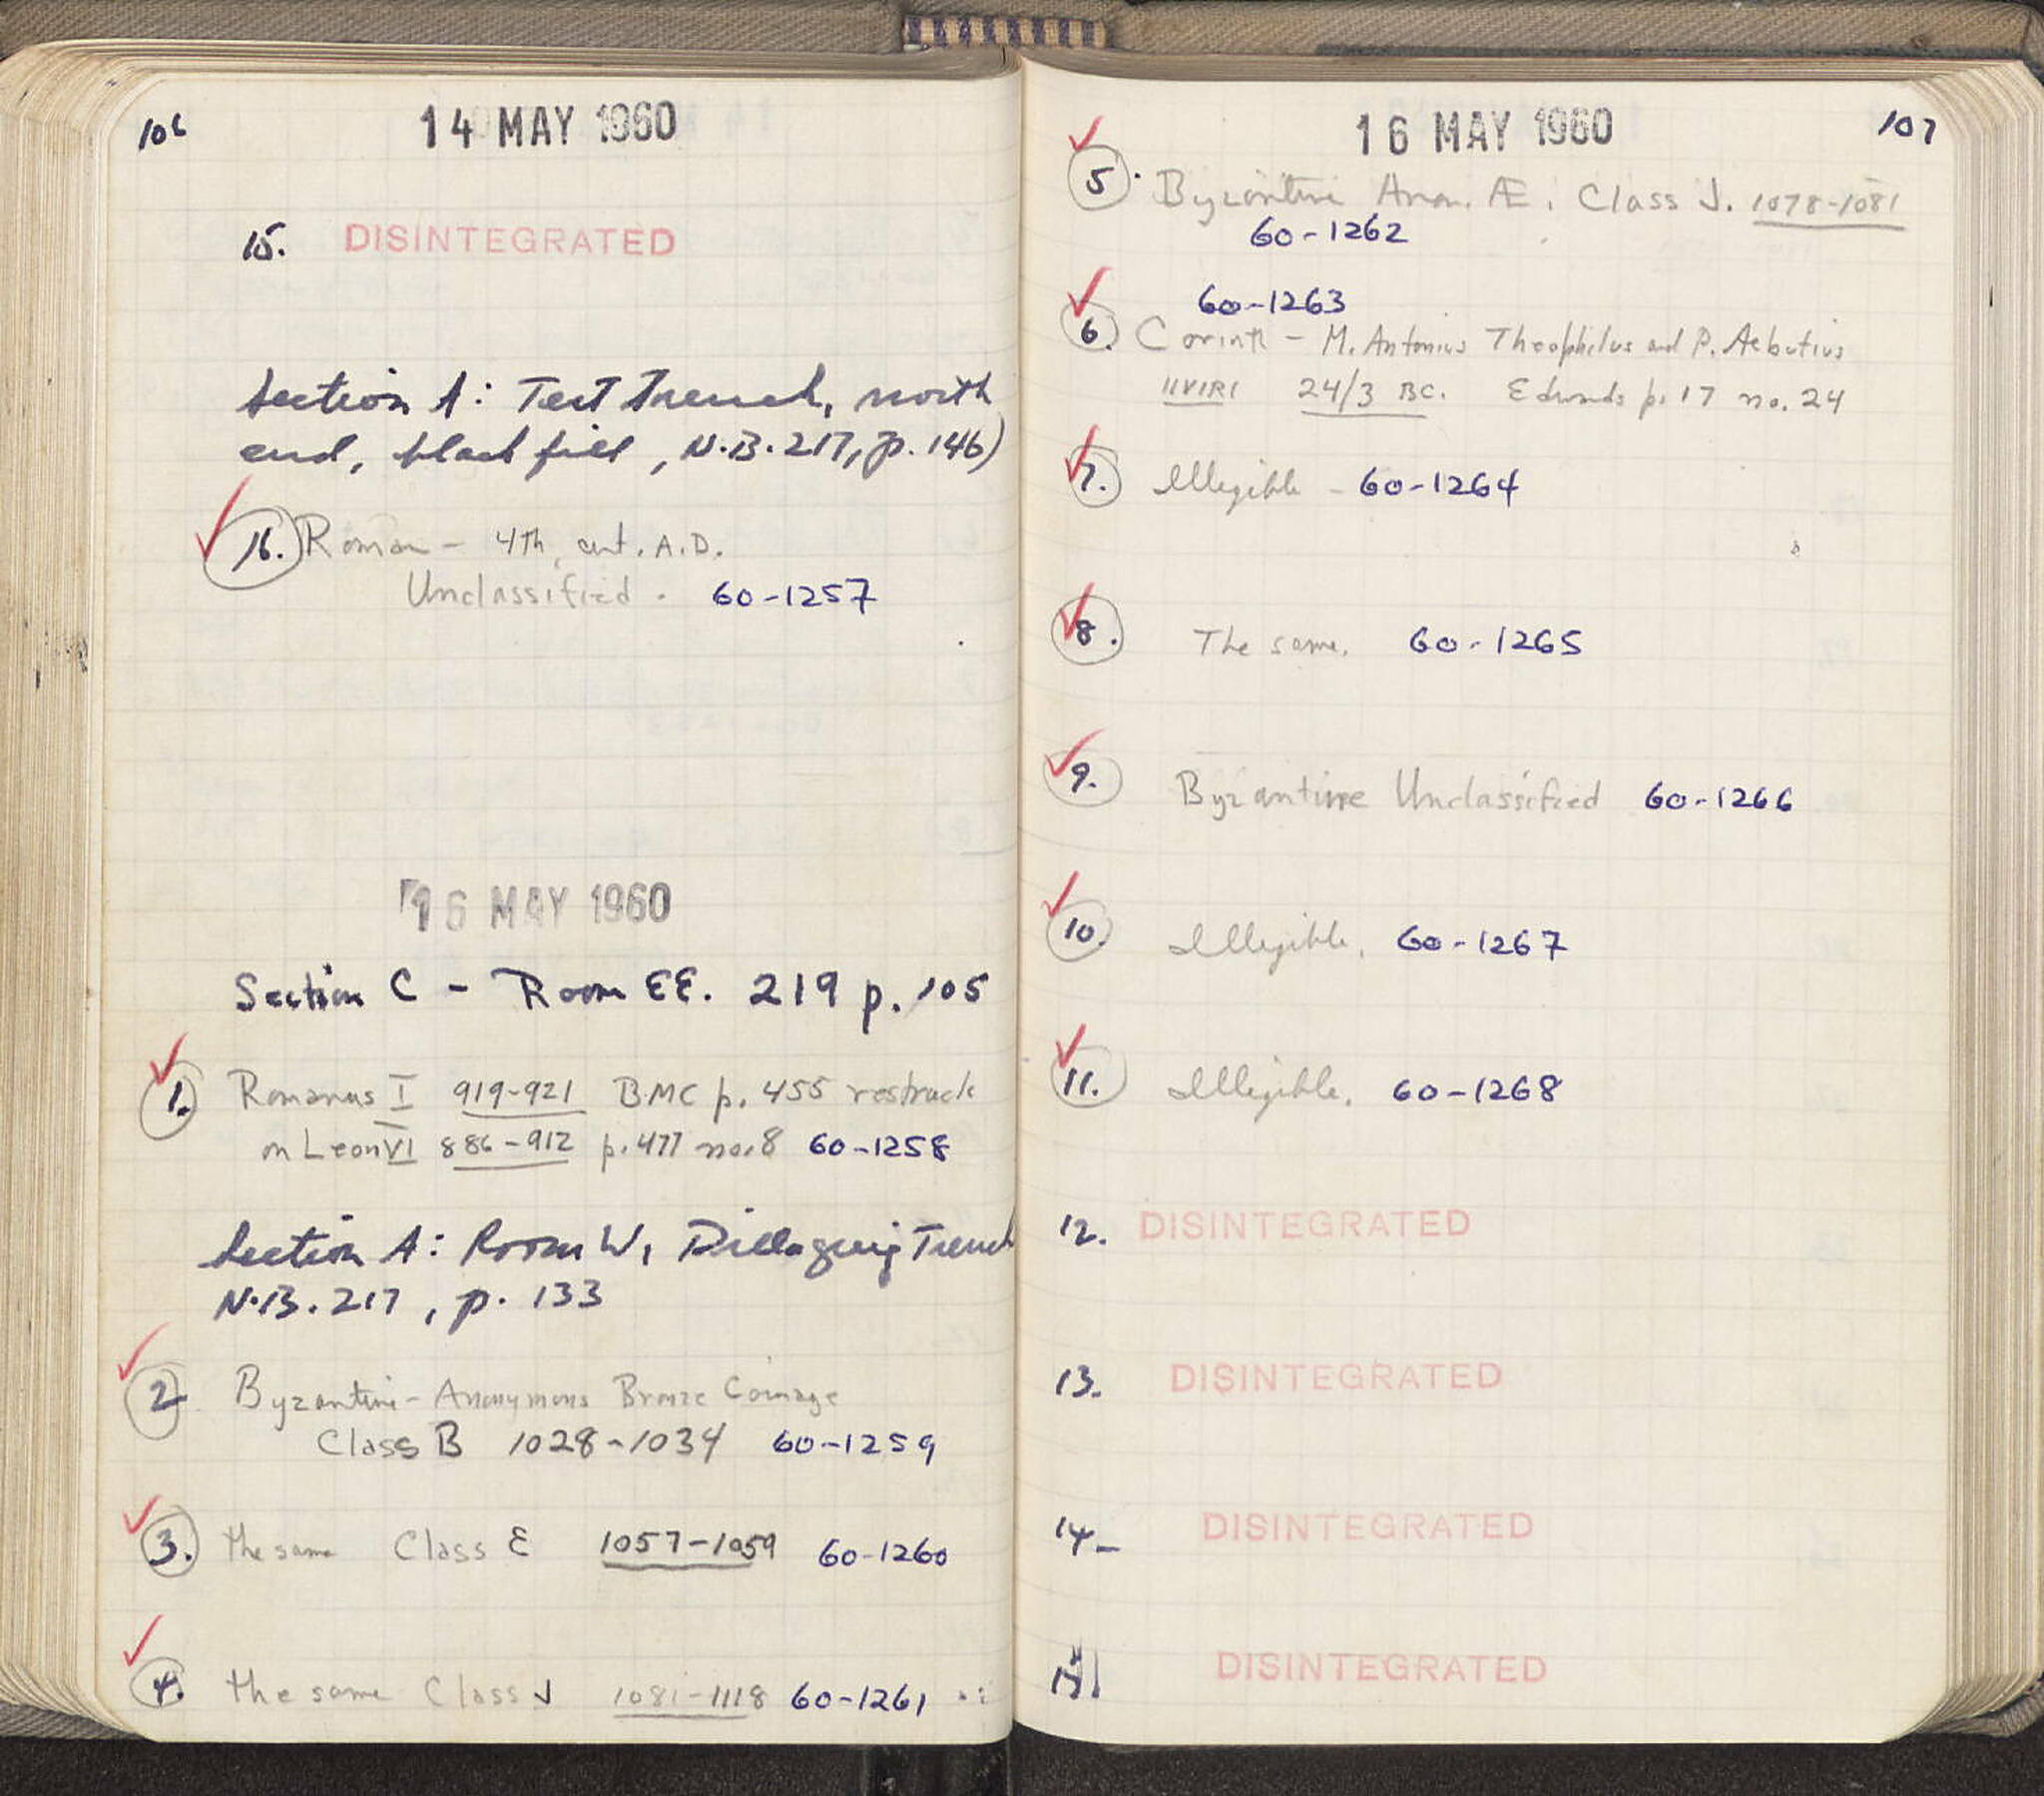 106
14 MAY 1960
15. DISINTEGRATED
Section A: Test Trench, north
end, black fill, N.B. 217, p. 146)
16. Roman - 4th cent. A.D.
Unclassified. 60-1257
16 MAY 1960
Section C - Room EE. 219 p. 105
1. Romanus I 919-921 BMC p. 455 restruck
on Leon VI 886-912 p. 477 no. 8 60-1258
Section A: Room W, Trench
N.B. 217, p. 133
2 Byzantine - Anonymous Bronze Coinage
Class B 1028-1034 60-1259
3. the same Class E 1057-1059 60-1260
4. the same Class J 1081-1118 60-1261
107
16 MAY 1960
5. Byzantine Anon. Æ. Class J. 1078-1081
60-1262
60-1263
6. Corinth - M. Antonius Theophilus and P. Aebutius
IIVIRI 24/3 BC. Edwards p. 17 no. 24
7. Illegible - 60-1264
8. The same. 60-1265
9. Byzantine Unclassified 60-1266
10. Illegible. 60-1267
11. Illegible. 60-1268
12. DISINTEGRATED
13. DISINTEGRATED
14- DISINTEGRATED
DISINTEGRATED